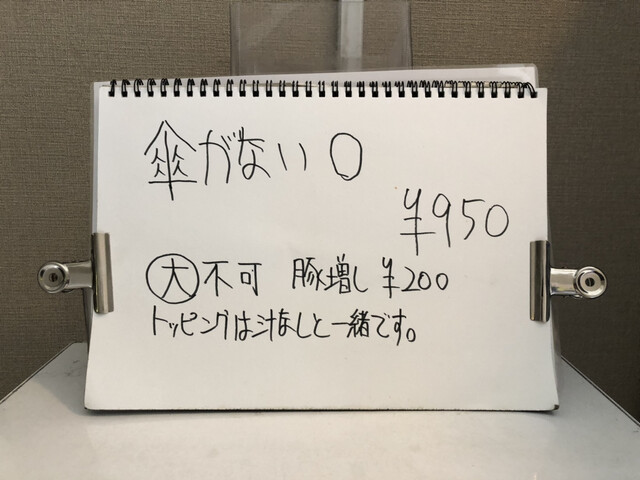 傘がない〇
¥950
大不可 豚増し ¥200
トッピングは汁なしと一緒です。